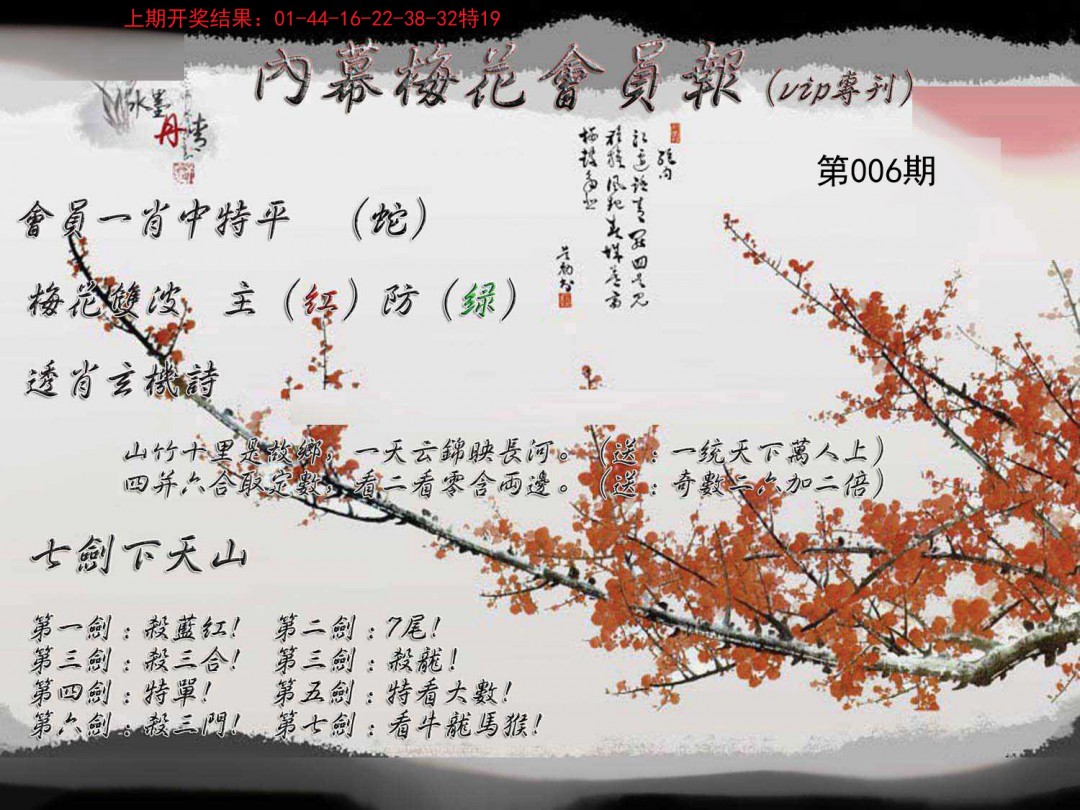 上期开奖结果：01-44-16-22-38-32特19
內幕梅花會員報(vip專刊)
水墨
丹青
第006期
會員一肖中特平 （蛇）
梅花雙波 主（红）防（绿）
透肖玄機詩
山竹十里是故鄉，一天云錦映長河。（送：一统天下萬人上）
四并六合取定數，看二看零含兩邊。（送：奇數二六加二倍）
七劍下天山
第一劍：殺藍红！ 第二劍：7尾！
第三劍：殺三合！ 第三劍：殺龍！
第四劍：特單！ 第五劍：特看大數！
第六劍：殺三門！ 第七劍：看牛龍馬猴！